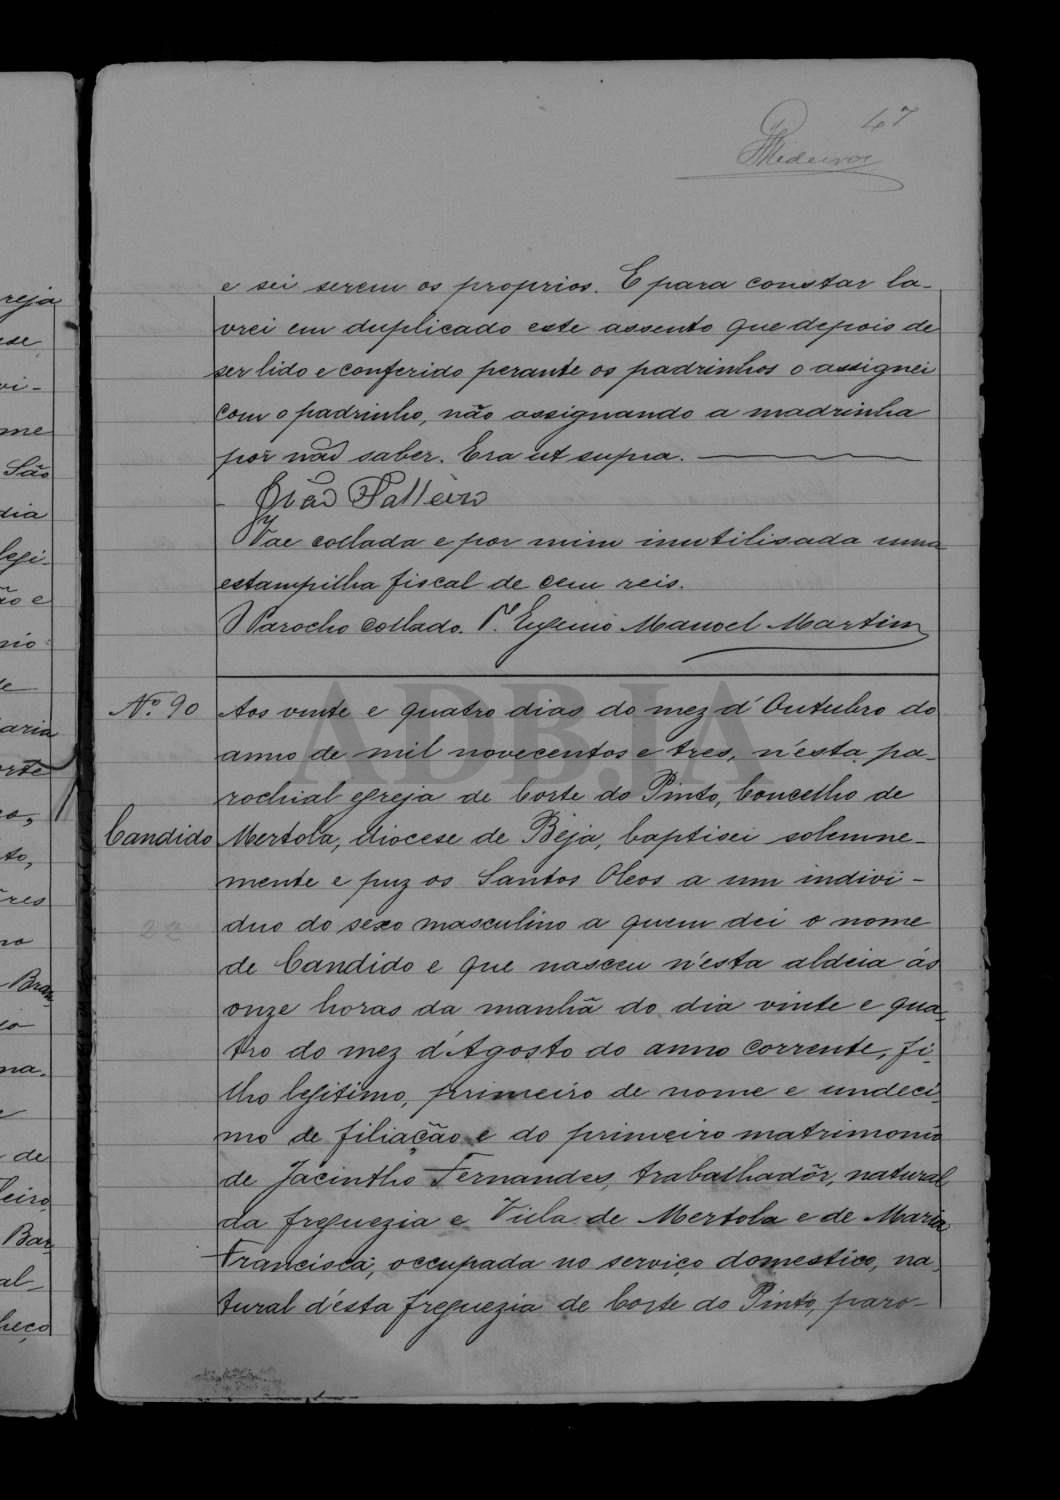 47
Medeiros
e sei serem os proprios. E para constar la-
vrei em duplicado este assento que depois de
ser lido e conferido perante os padrinhos o assignei
com o padrinho, não assignando a madrinha
por não saber. Era ut supra.
João Palleiro
Vae collada e por mim inutilisada uma
estampilha fiscal de cem reis.
O Parocho collado. P. Eugenio Manoel Martins
Nº. 90
Candido
22
Aos vinte e quatro dias do mez d'Outubro do
anno de mil novecentos e tres, n'esta pa-
rochial egreja de Corte do Pinto, Concelho de
Mertola, diocese de Béja, baptisei solemne-
mente e puz os Santos Oleos a um indivi-
duo do sexo masculino a quem dei o nome
de Candido e que nasceu n'esta aldeia ás
onze horas da manhã do dia vinte e qua-
tro do mez d'Agosto do anno corrente, fi-
lho legitimo, primeiro de nome e undeci-
mo de filiação e do primeiro matrimonio
de Jacintho Fernandes, trabalhadôr, natural
da freguezia e Villa de Mertola e de Maria
Francisca, occupada no serviço domestico, na-
tural d'ésta freguezia de Corte do Pinto, paro-
ADBJA
reja
ese
vi-
me
São
dia
legi-
ão e
nio
de
aria
orte
to,
res
no
Bran
na.
de
leiro,
Bar
al-
heço